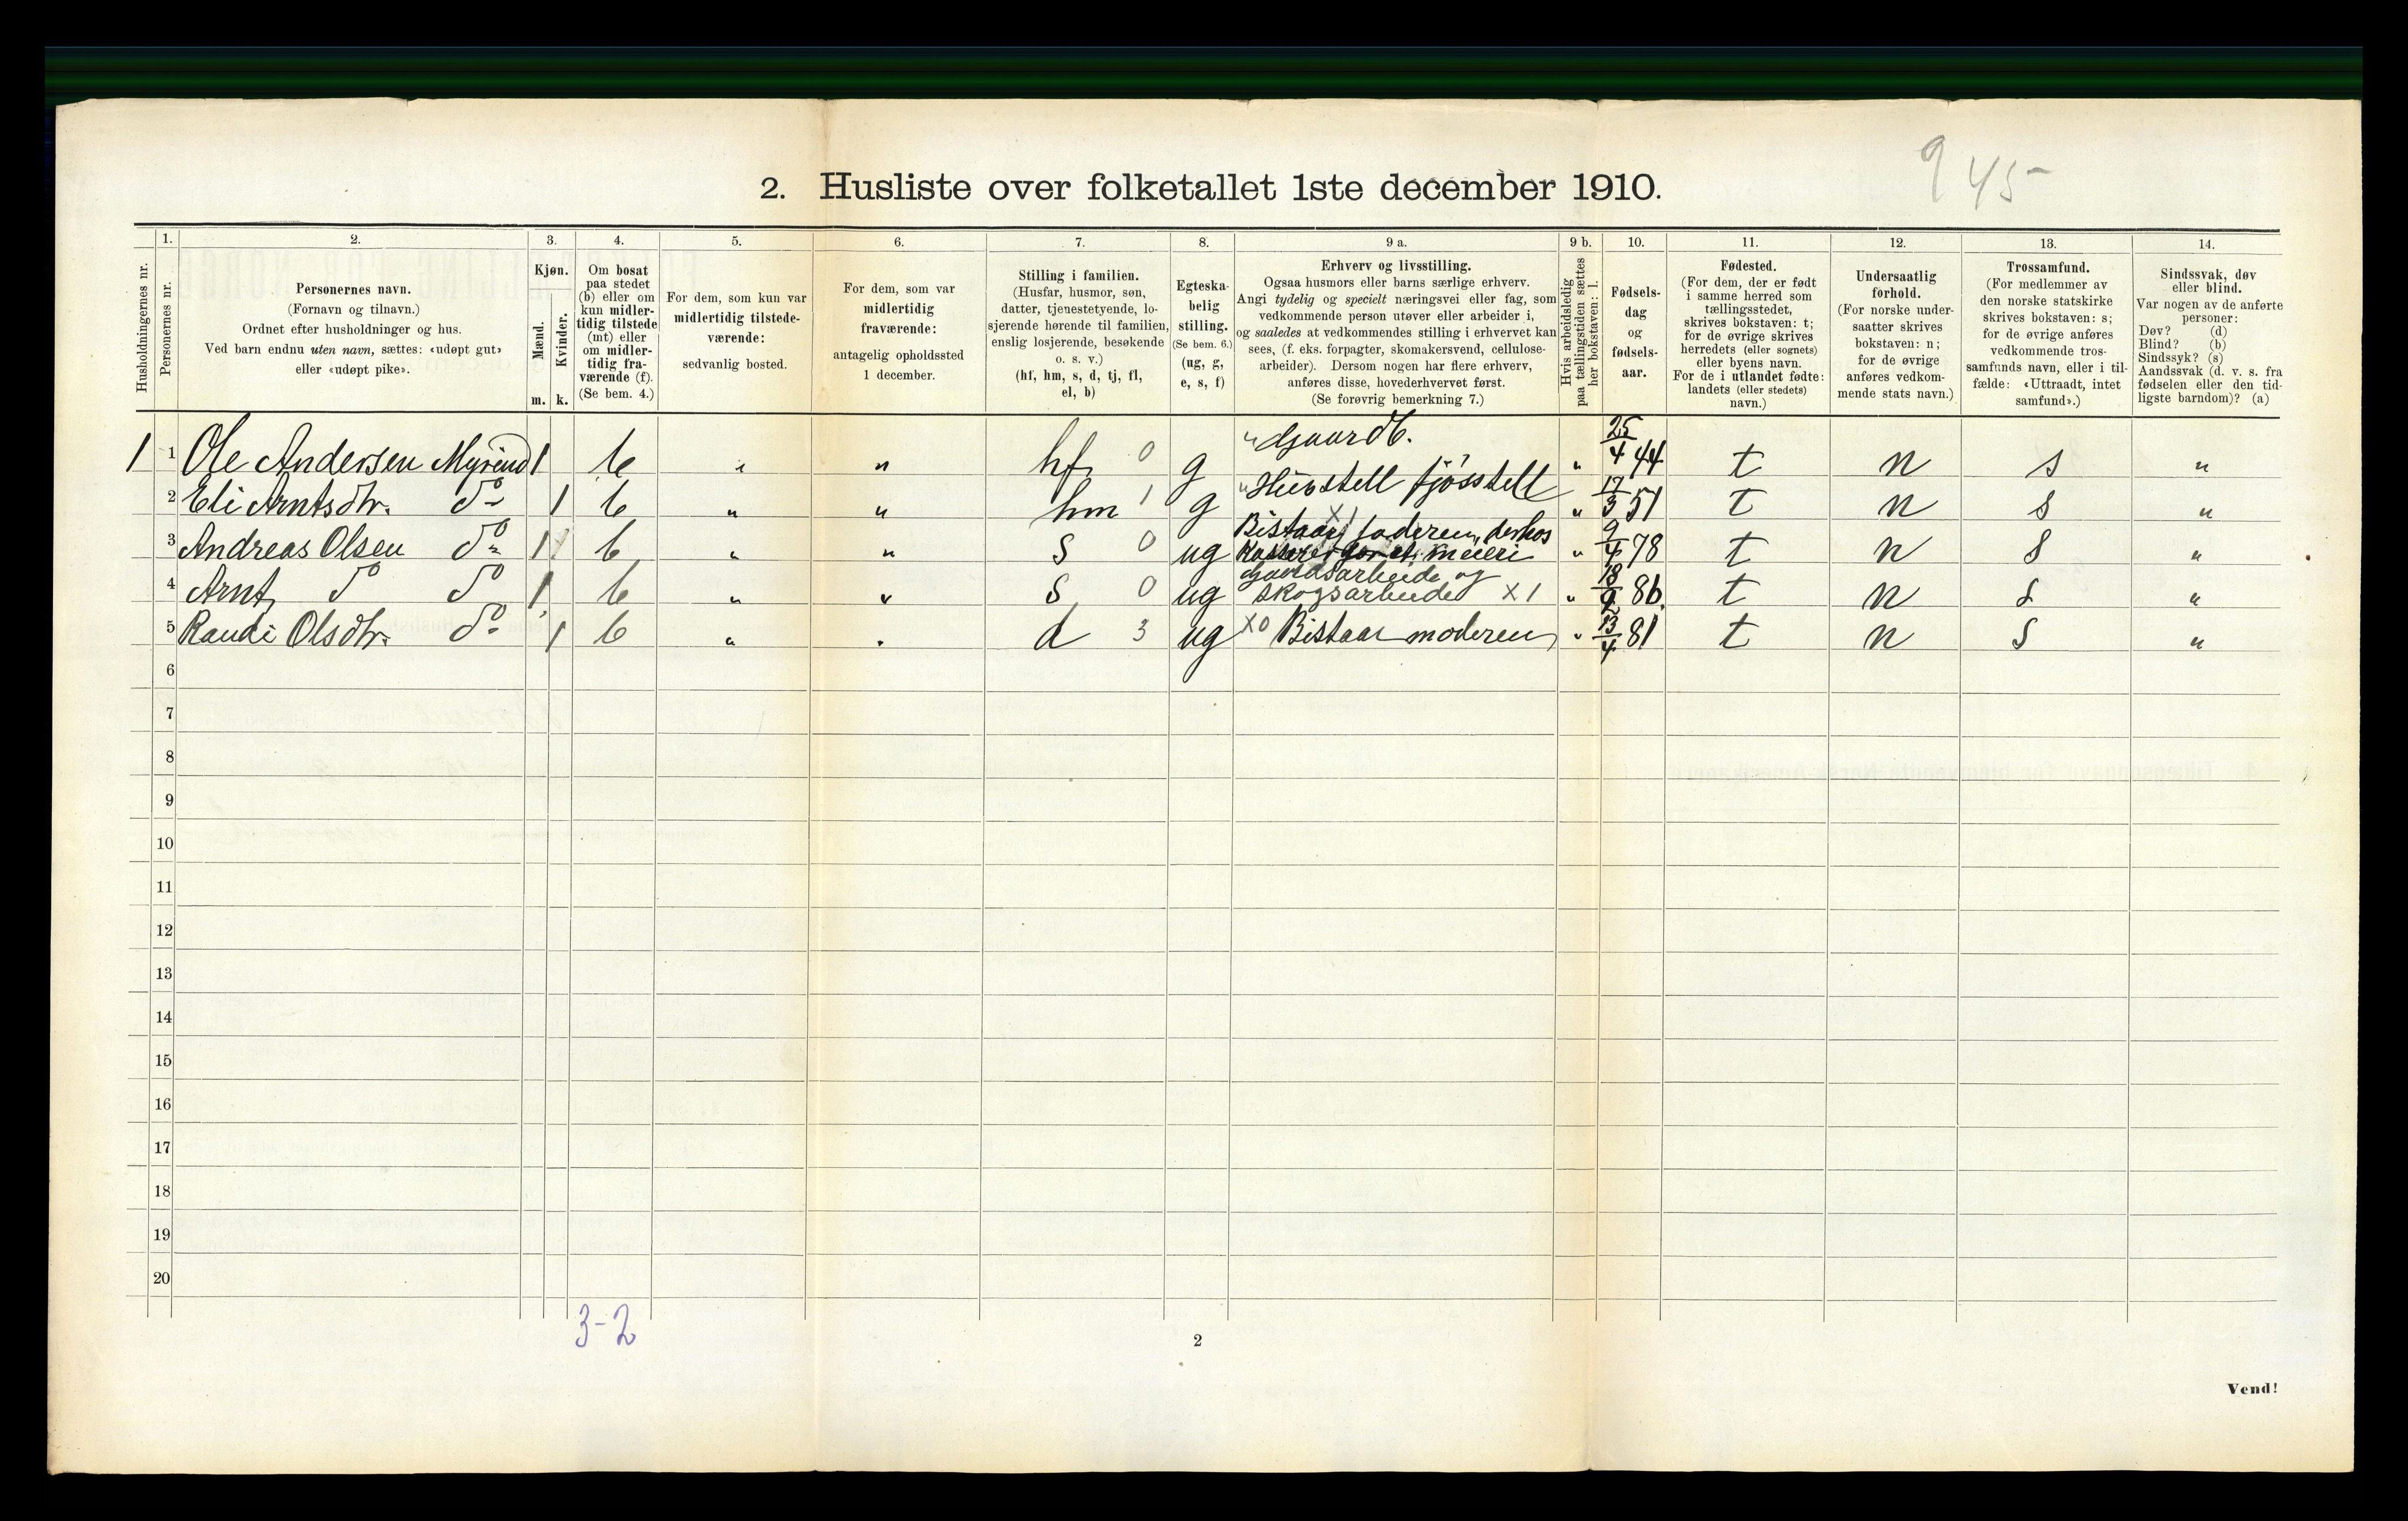 945
2. Husliste over folketallet 1ste december 1910.
Husholdningernes nr.
1.
Personernes nr.
2.
Personernes navn.
(Fornavn og tilnavn.)
Ordnet efter husholdninger og hus.
Ved barn endnu uten navn, sættes: «udøpt gut»
eller «udøpt pike».
3.
Kjøn.
Mænd.
Kvinder.
m. k.
4.
Om bosat
paa stedet
(b) eller om
kun midler-
tidig tilstede
(mt) eller
om midler-
tidig fra-
værende (f).
(Se bem. 4.)
5.
For dem, som kun var
midlertidig tilstede-
værende:
sedvanlig bosted.
6.
For dem, som var
midlertidig
fraværende:
antagelig opholdssted
1 december.
7.
Stilling i familien.
(Husfar, husmor, søn,
datter, tjenestetyende, lo-
sjerende hørende til familien,
enslig losjerende, besøkende
o. s. v.)
(hf, hm, s, d, tj, fl,
el, b)
8.
Egteska-
belig
stilling.
(Se bem. 6.)
(ug, g,
e, s, f)
9 a.
Erhverv og livsstilling.
Ogsaa husmors eller barns særlige erhverv.
Angi tydelig og specielt næringsvei eller fag, som
vedkommende person utøver eller arbeider i,
og saaledes at vedkommendes stilling i erhvervet kan
sees, (f. eks. forpagter, skomakersvend, cellulose-
arbeider). Dersom nogen har flere erhverv,
anføres disse, hovederhvervet først.
(Se forøvrig bemerkning 7.)
9 b.
Hvis arbeidsledig
paa tællingstiden sættes
her bokstaven: l.
10.
Fødsels-
dag
og
fødsels-
aar.
11.
Fødested.
(For dem, der er født
i samme herred som
tællingsstedet,
skrives bokstaven: t;
for de øvrige skrives
herredets (eller sognets)
eller byens navn.
For de i utlandet fødte:
landets (eller stedets)
navn.)
12.
Undersaatlig
forhold.
(For norske under-
saatter skrives
bokstaven: n;
for de øvrige
anføres vedkom-
mende stats navn.)
13.
Trossamfund.
(For medlemmer av
den norske statskirke
skrives bokstaven: s;
for de øvrige anføres
vedkommende tros-
samfunds navn, eller i til-
fælde: «Uttraadt, intet
samfund».)
14.
Sindssvak, døv
eller blind.
Var nogen av de anførte
personer:
Døv? (d)
Blind? (b)
Sindssyk? (s)
Aandssvak (d. v. s. fra
fødselen eller den tid-
ligste barndom)? (a)
1 1 Ole Andersen Myrind 1 b " " hf 0 g " Gaardb. " 25/4 44 t n s "
2 Eli Arntsdtr. do 1 b " " hm 1 g " Husstell fjøsstell " 17/3 51 t n s "
3 Andreas Olsen do 1 b " " s 0 ug Bistaar faderen, derhos X1
Kasserer for et meieri " 9/4 78 t n s "
4 Arnt do do 1 b " " s 0 ug Gaardsarbeide og
skogsarbeide X1 " 18/9 86. t n s "
5 Randi Olsdtr. do 1 b " " d 3 ug X0 Bistaar moderen " 13/4 81 t n s "
6
7
8
9
10
11
12
13
14
15
16
17
18
19
20
3-2
2
Vend!